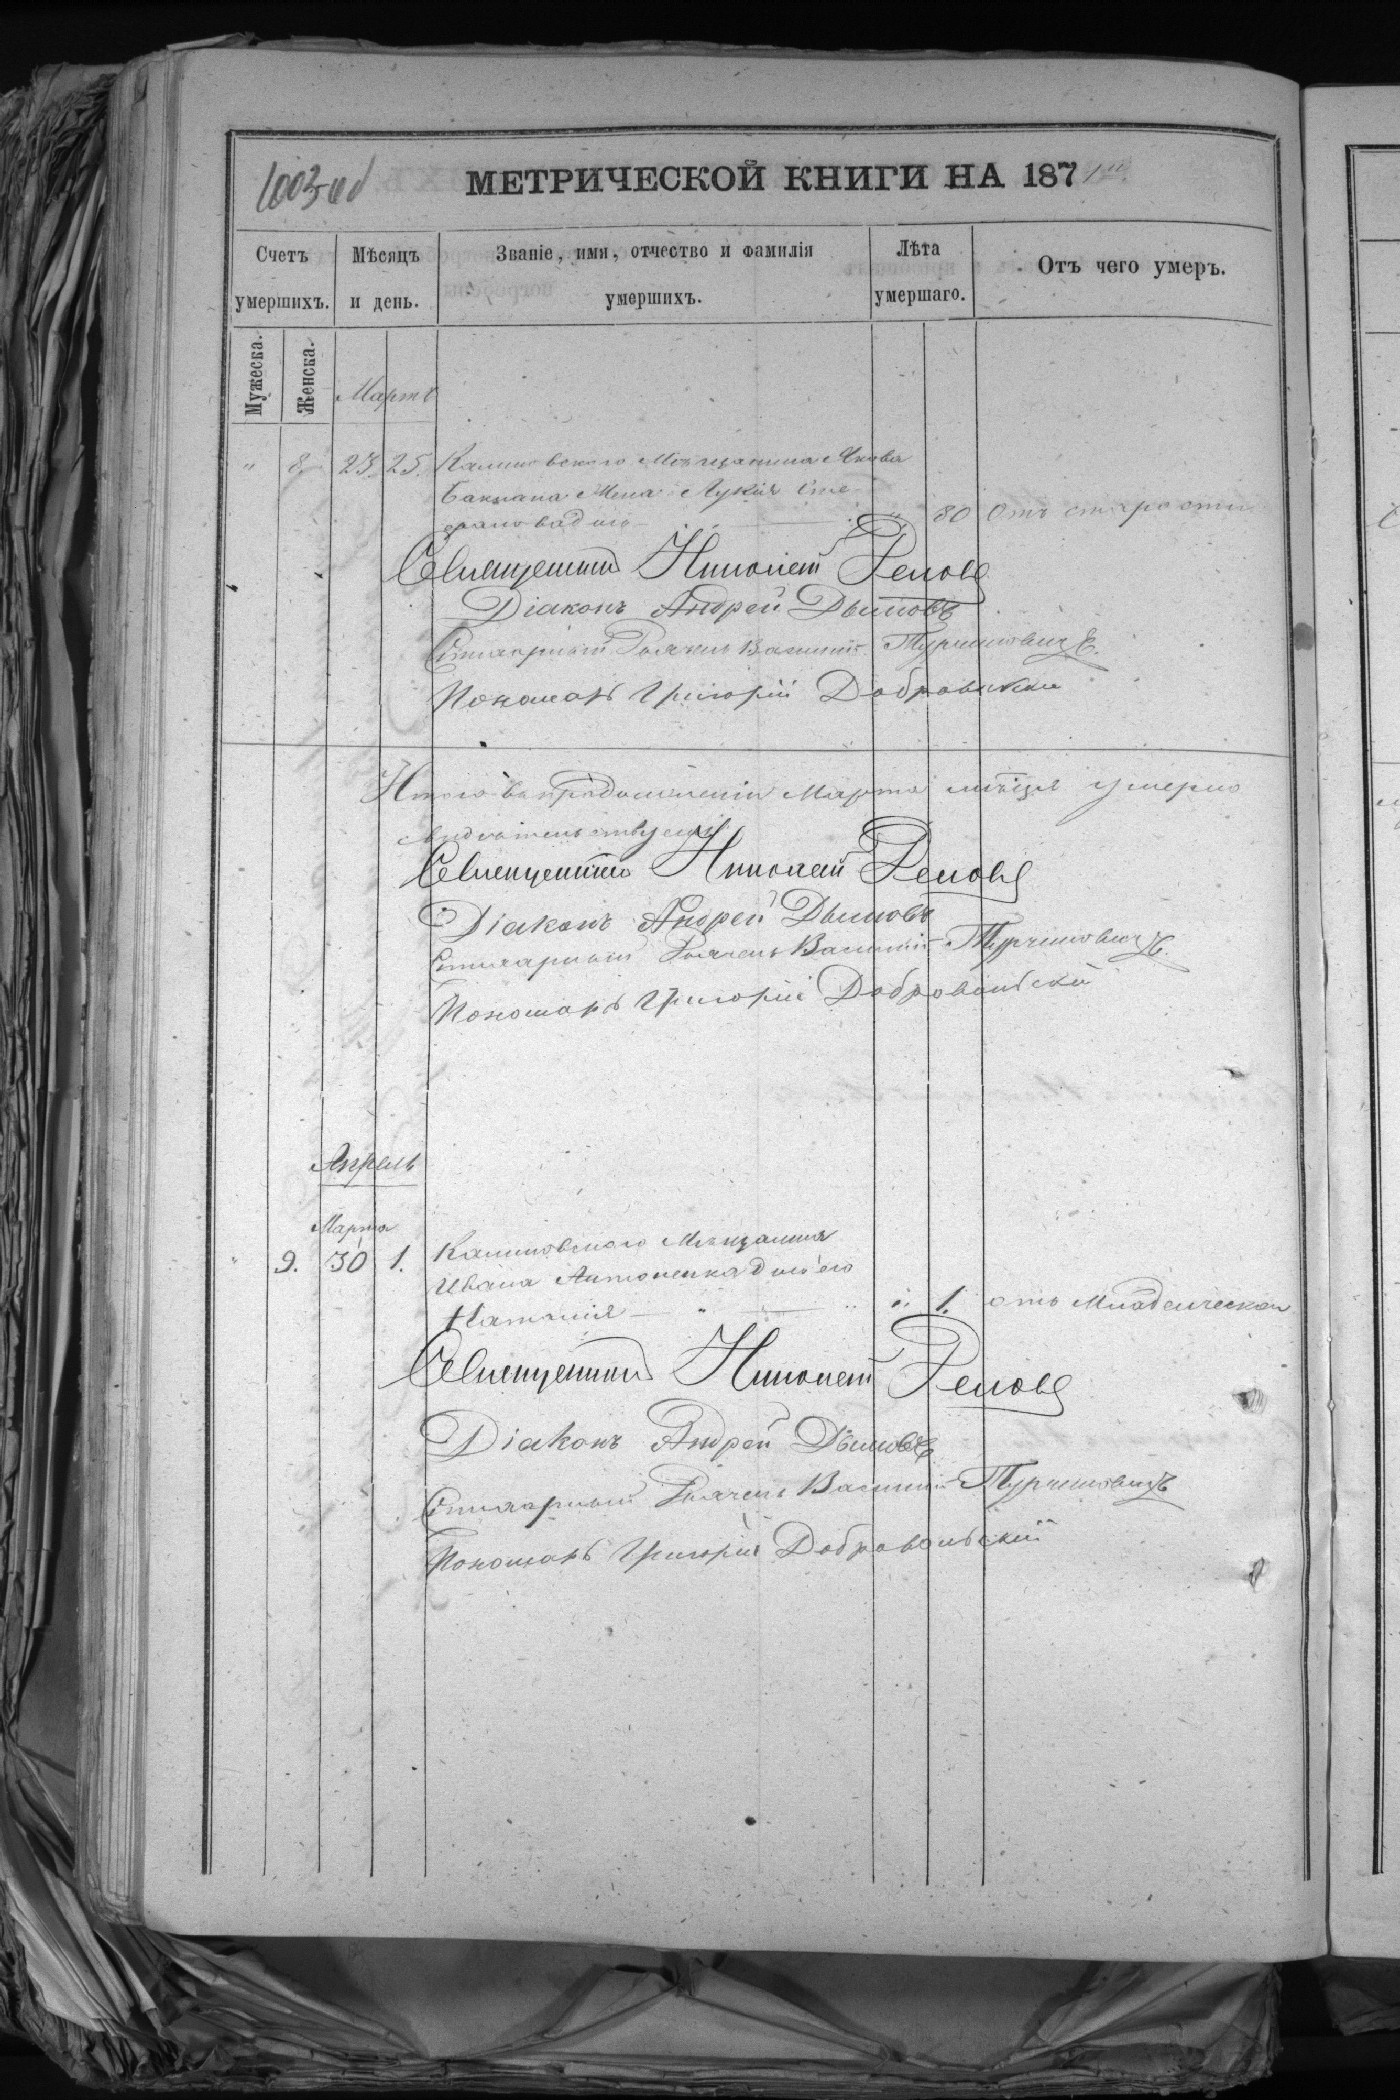 1003 об
МЕТРИЧЕСКОЙ КНИГИ НА 1871
Счетъ умершихъ.
Мѣсяцъ и день.
Званіе, имя, отчество и фамилія умершихъ.
Лѣта умершаго.
Отъ чего умеръ.
Мужеска.
Женска.
Мартъ
" 8 23 25 Калиновского Мѣщанина Якова
Баклана Жена Лукія Сте
фановадочь 80 Отъ старости
Священник Николай
Діаконъ Андрей Дымовъ
Василій Турчиновичъ.
Пономарь Григорій Добровольскій
Итого въ продолженіи Марта мѣсяца умерло
свидѣтельствуемъ
Священник Николай
Діаконъ Андрей Дымовъ
Василій Турчиновичъ.
Пономарь Григорій Добровольскій
Апрель
Марта
" 9. 30 1. Калиновского Мѣщанина
Ивана Антоненка дочь его
Наталія " 1. отъ Младенческой
Священник Николай
Діаконъ Андрей Дымовъ
Василій Турчиновичъ
Пономарь Григорій Добровольскій